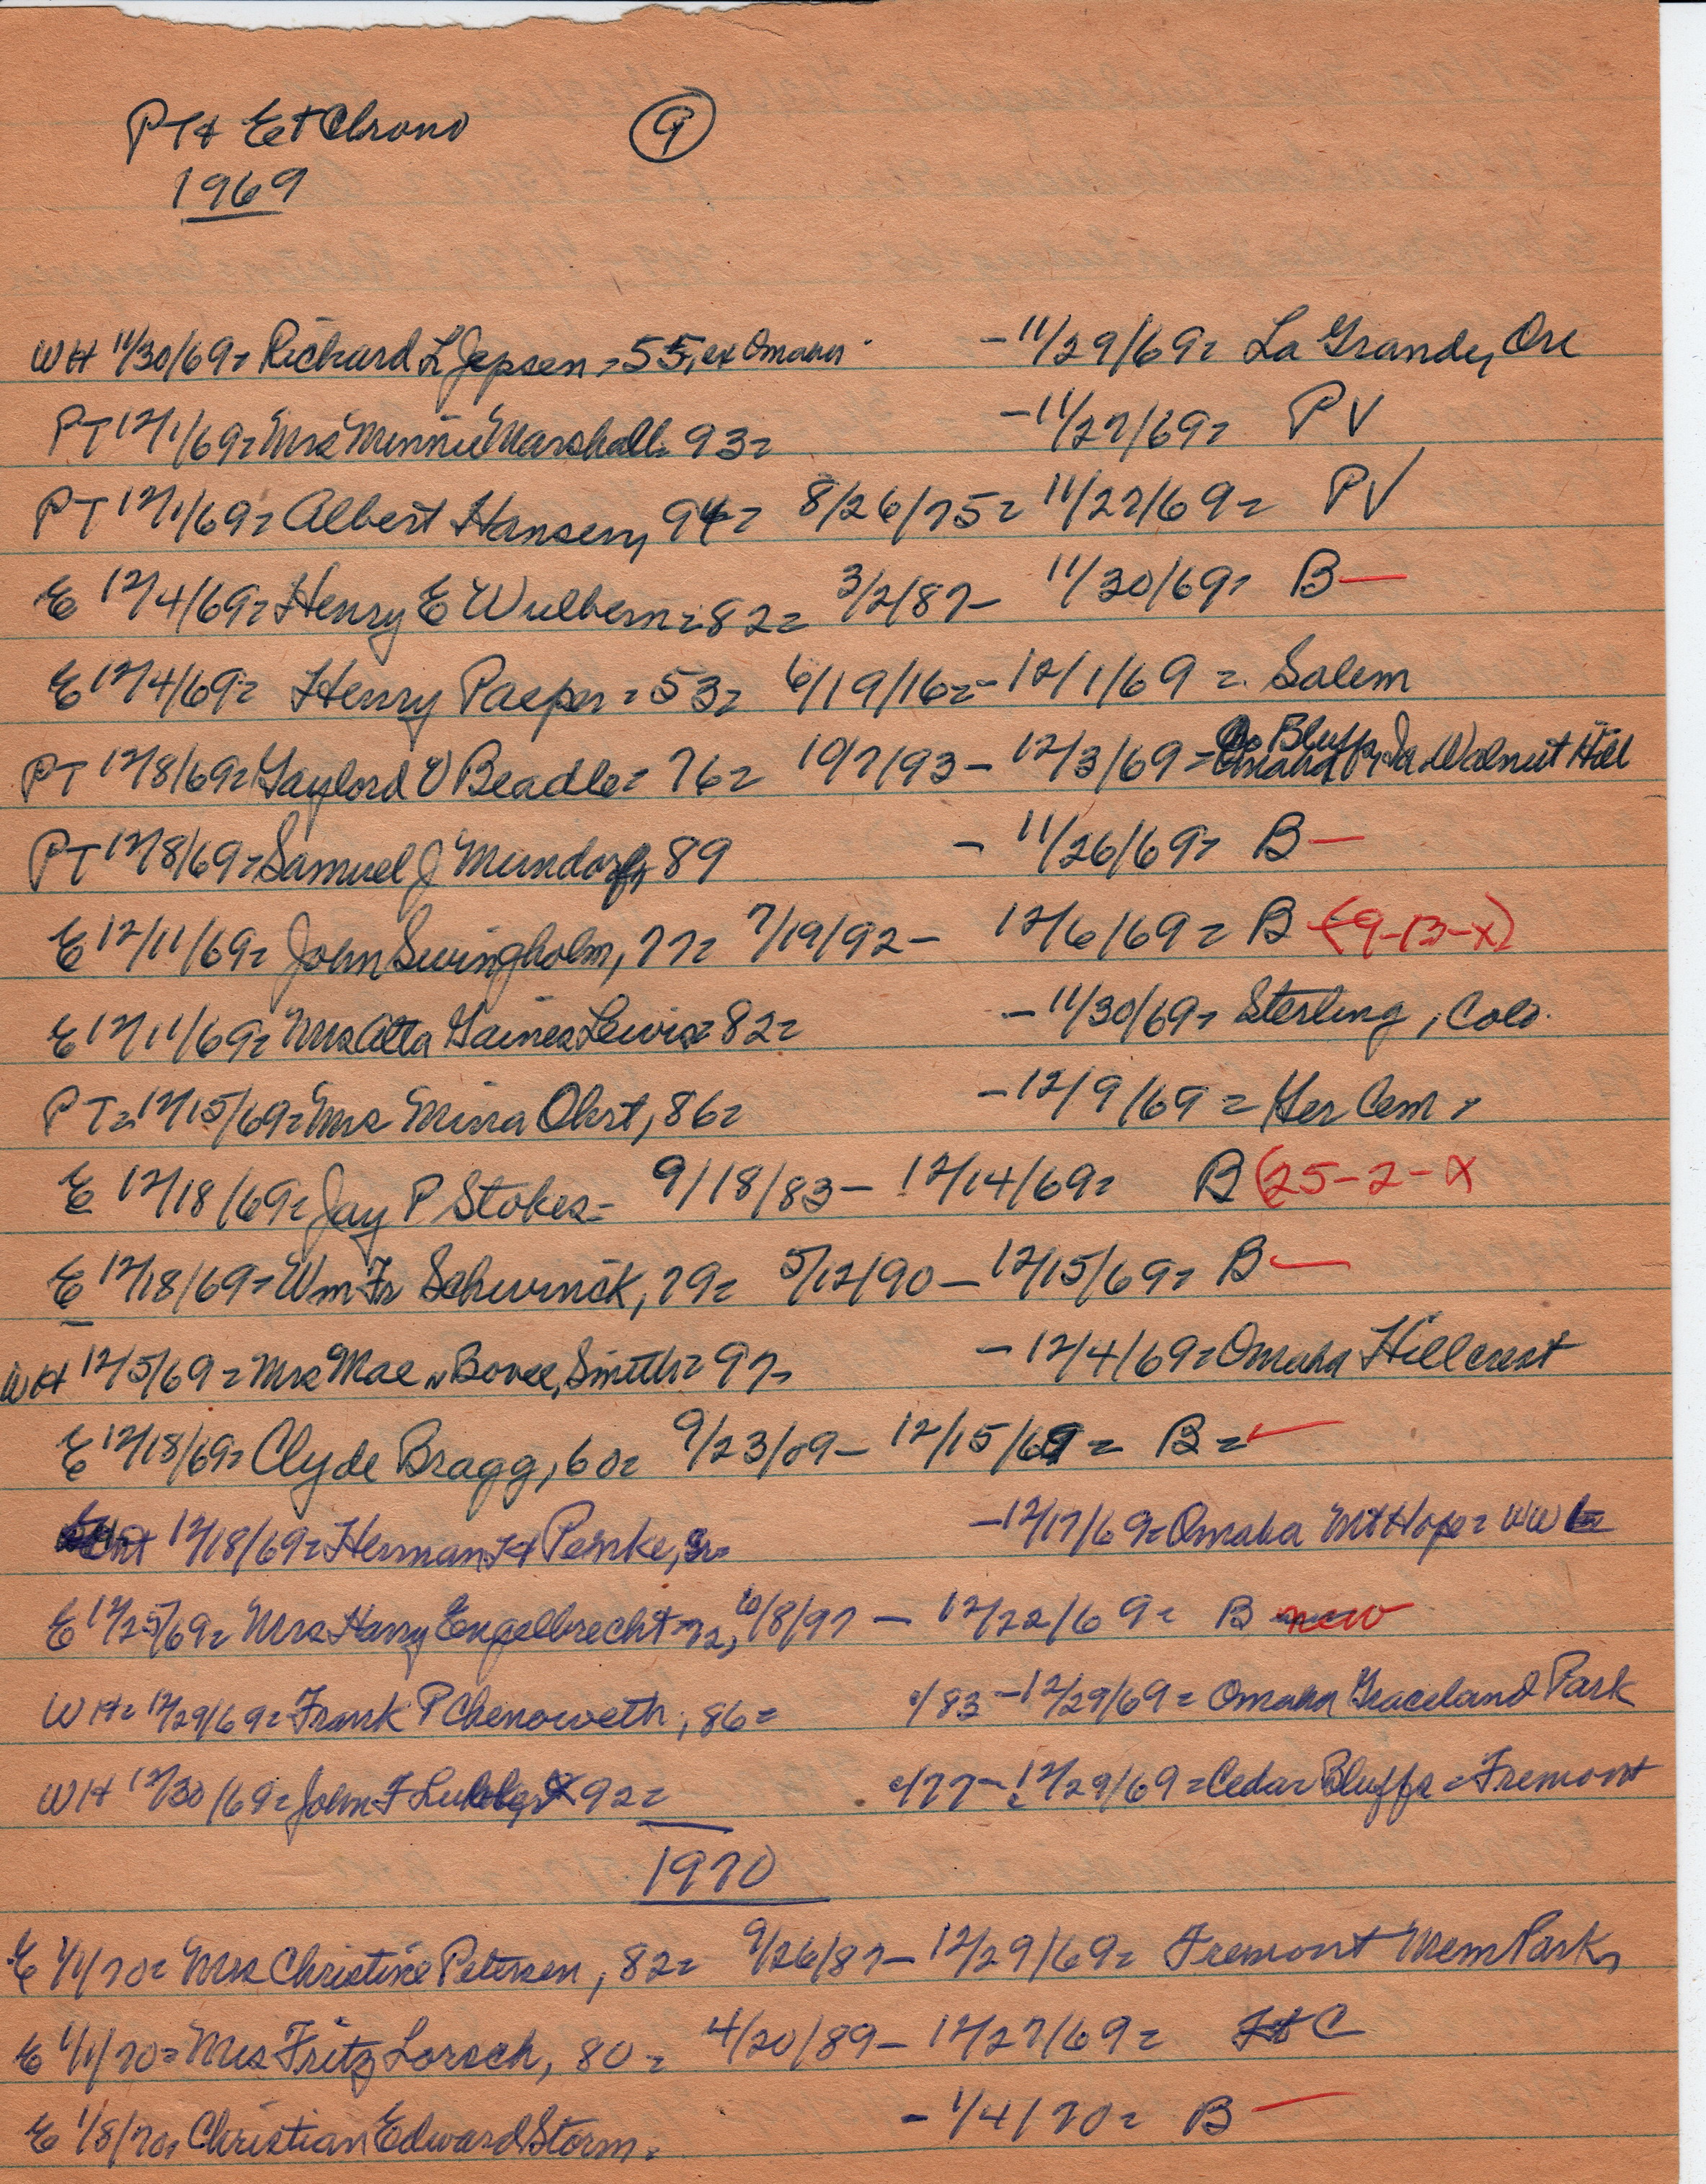 PT + Et Chrono ⑨
1969
WH 11/30/69= Richard L Jepsen, 55, ex Omaha - 11/29/69= La Grande, Ore
PT 12/1/69= Mrs Minnie Marshall= 93= - 11/27/69= PV
PT 12/1/69= Albert Hansen, 94= 8/26/75= 11/27/69= PV
E 12/4/69= Henry E Wulbern= 82= 3/2/87- 11/30/69= B—
E 12/4/69= Henry Paeper= 53= 6/19/16=- 12/1/69 = Salem
PT 12/8/69= Gaylord V Beadle= 76= 10/7/93- 12/3/69= Co Bluffs, Ia Walnut Hill
PT 12/8/69= Samuel J Mundorf, 89 - 11/26/69= B—
E 12/11/69= John Swingholm, 77= 7/19/92- 12/6/69= B (9-13-x)
E 12/11/69= Mrs Atta Gaines Lewis= 82= - 11/30/69= Sterling, Colo.
PT= 12/15/69= Mrs Mina Obst, 86= - 12/9/69= Ger Cem
E 12/18/69= Jay P Stokes= 9/18/83- 12/14/69= B (25-2-x
E 12/18/69= Wm Fr Schurnick, 79= 5/12/90- 12/15/69= B—
WH 12/5/69= Mrs Mae Bovee, Smith= 97= - 12/4/69= Omaha Hillcrest
E 12/18/69= Clyde Bragg, 60= 9/23/09- 12/15/69= B=—
12/18/69= Herman H Pemke, Sr= - 12/17/69= Omaha Mt Hope= WW
E 12/25/69= Mrs Harry Engelbrecht=72, 10/8/97- 12/22/69= B new
WH= 12/29/69= Frank P Chenoweth, 86= c/83- 12/29/69= Omaha Graceland Park
WH 12/30/69= John F 92= c/77- 12/29/69= Cedar Bluffs= Fremont
1970
E 1/1/70= Mrs Christine Petersen, 82= 9/26/87- 12/29/69= Fremont Mem Park
E 1/1/70= Mrs Fritz Lorsch, 80= 4/20/89- 12/27/69= Ft C
E 1/8/70= Christian Edward Storm= - 1/4/70= B—